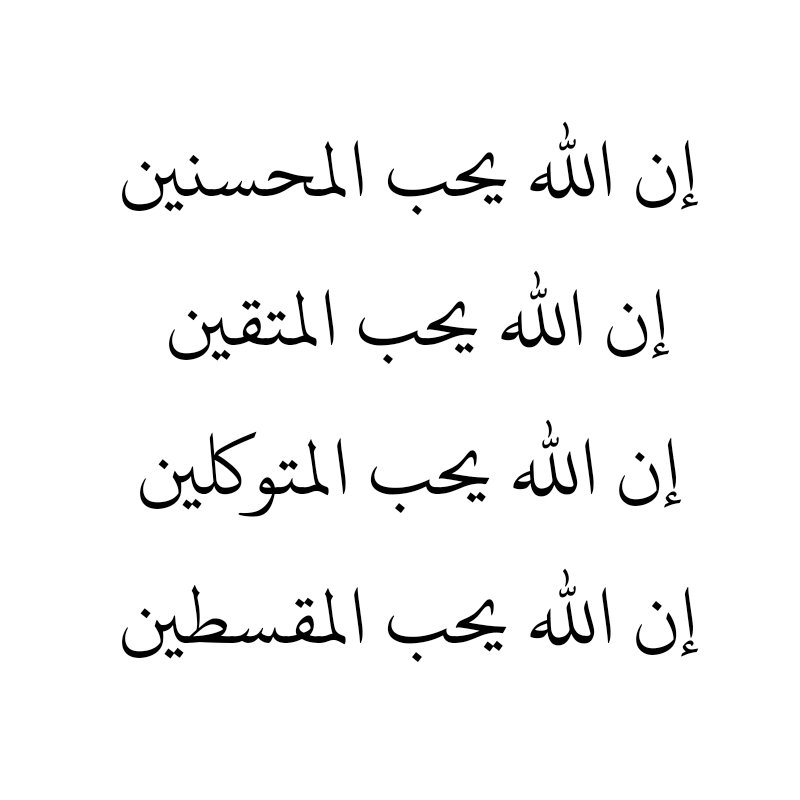 إن الله يحب المحسنين
إن الله يحب المتقين
إن الله يحب المتوكلين
إن الله يحب المقسطين